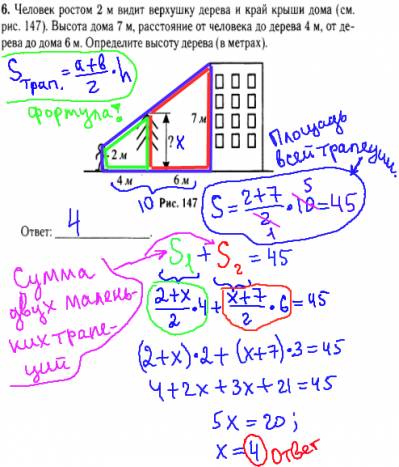 6. Человек ростом 2 м видит верхушку дерева и край крыши дома (см.
рис. 147). Высота дома 7 м, расстояние от человека до дерева 4 м, от де-
рева до дома 6 м. Определите высоту дерева (в метрах).
Sтрап. = a+b/2 · h
формула!
7 м
? x
2 м
4 м 6 м
10 Рис. 147
Площадь
всей трапеции.
S = 2+7/2 · 10 = 45
5
1
Ответ: 4
S1 + S2 = 45
Сумма
двух малень-
ких трапе-
ций
2+x/2 · 4 + x+7/2 · 6 = 45
(2+x) · 2 + (x+7) · 3 = 45
4 + 2x + 3x + 21 = 45
5x = 20;
x = 4 ответ